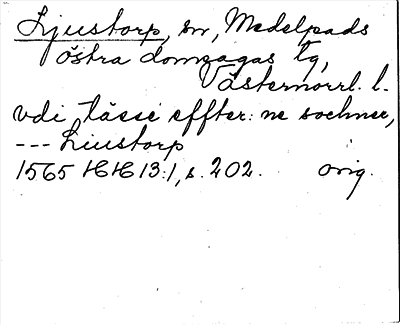 Ljustorp, sn, Medelpads
östra domsagas tg,
Västernorrl. l.
vdi tässe effter: ne sochner,
--- Liustorp
1565 HH 13:1, s. 202. orig.